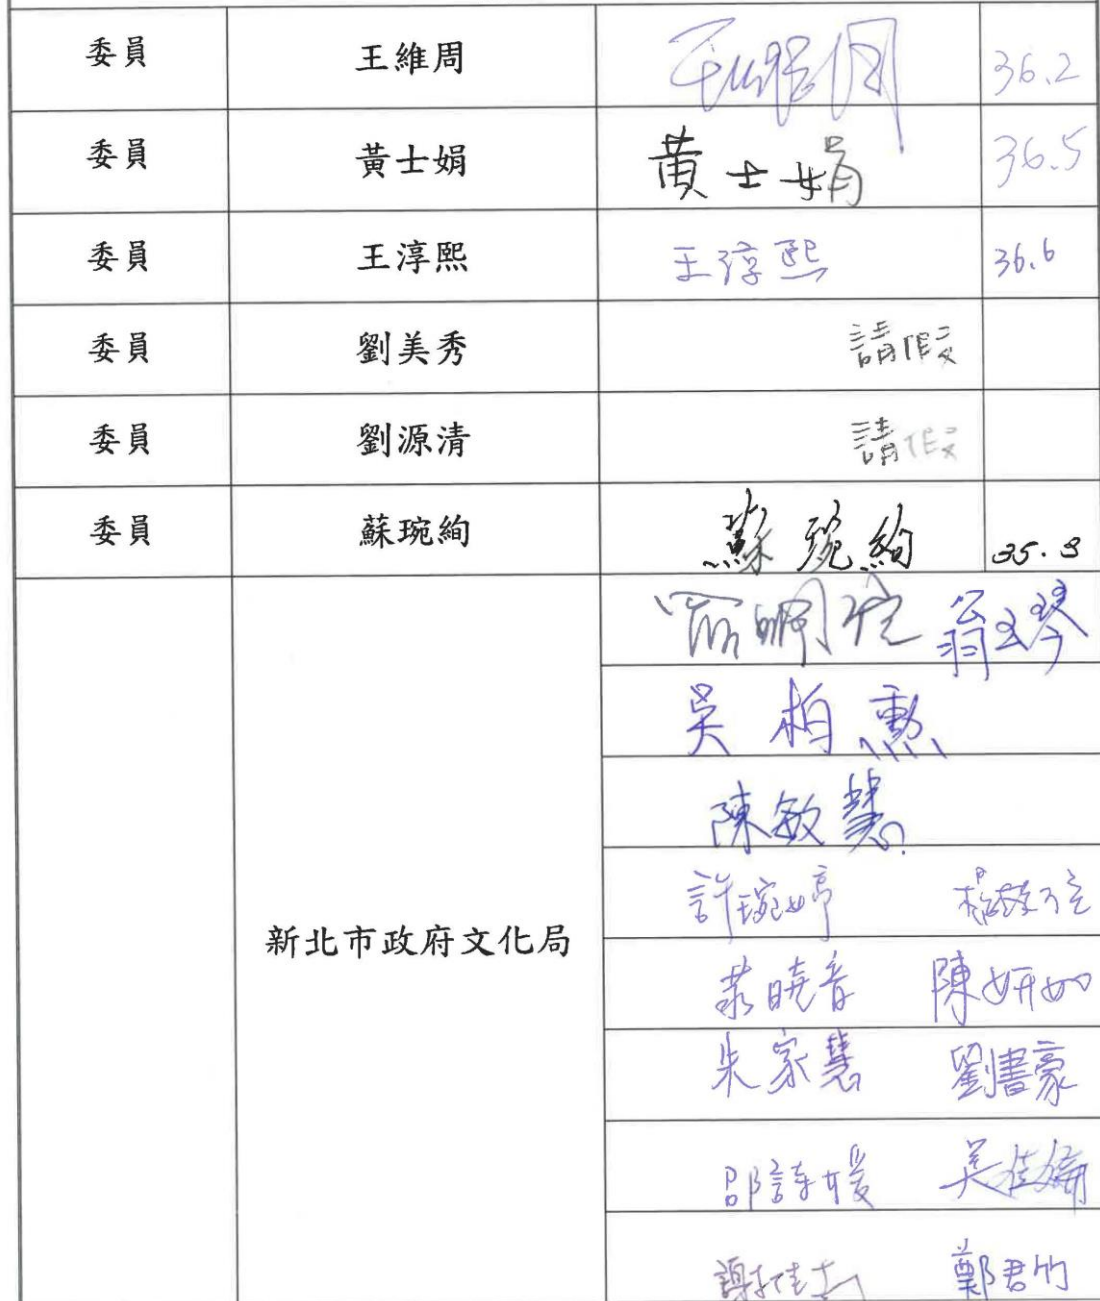 委員 王維周 王維周 36.2
委員 黃士娟 黃士娟 36.5
委員 王淳熙 王淳熙 36.6
委員 劉美秀 請假
委員 劉源清 請假
委員 蘇琬絢 蘇琬絢 35.3
翁玉琴
吳柏勳
陳敏慧
新北市政府文化局 許琬婷
曉音 陳妍如
朱家慧 劉書豪
邵詩媛 吳佳倫
鄭君竹